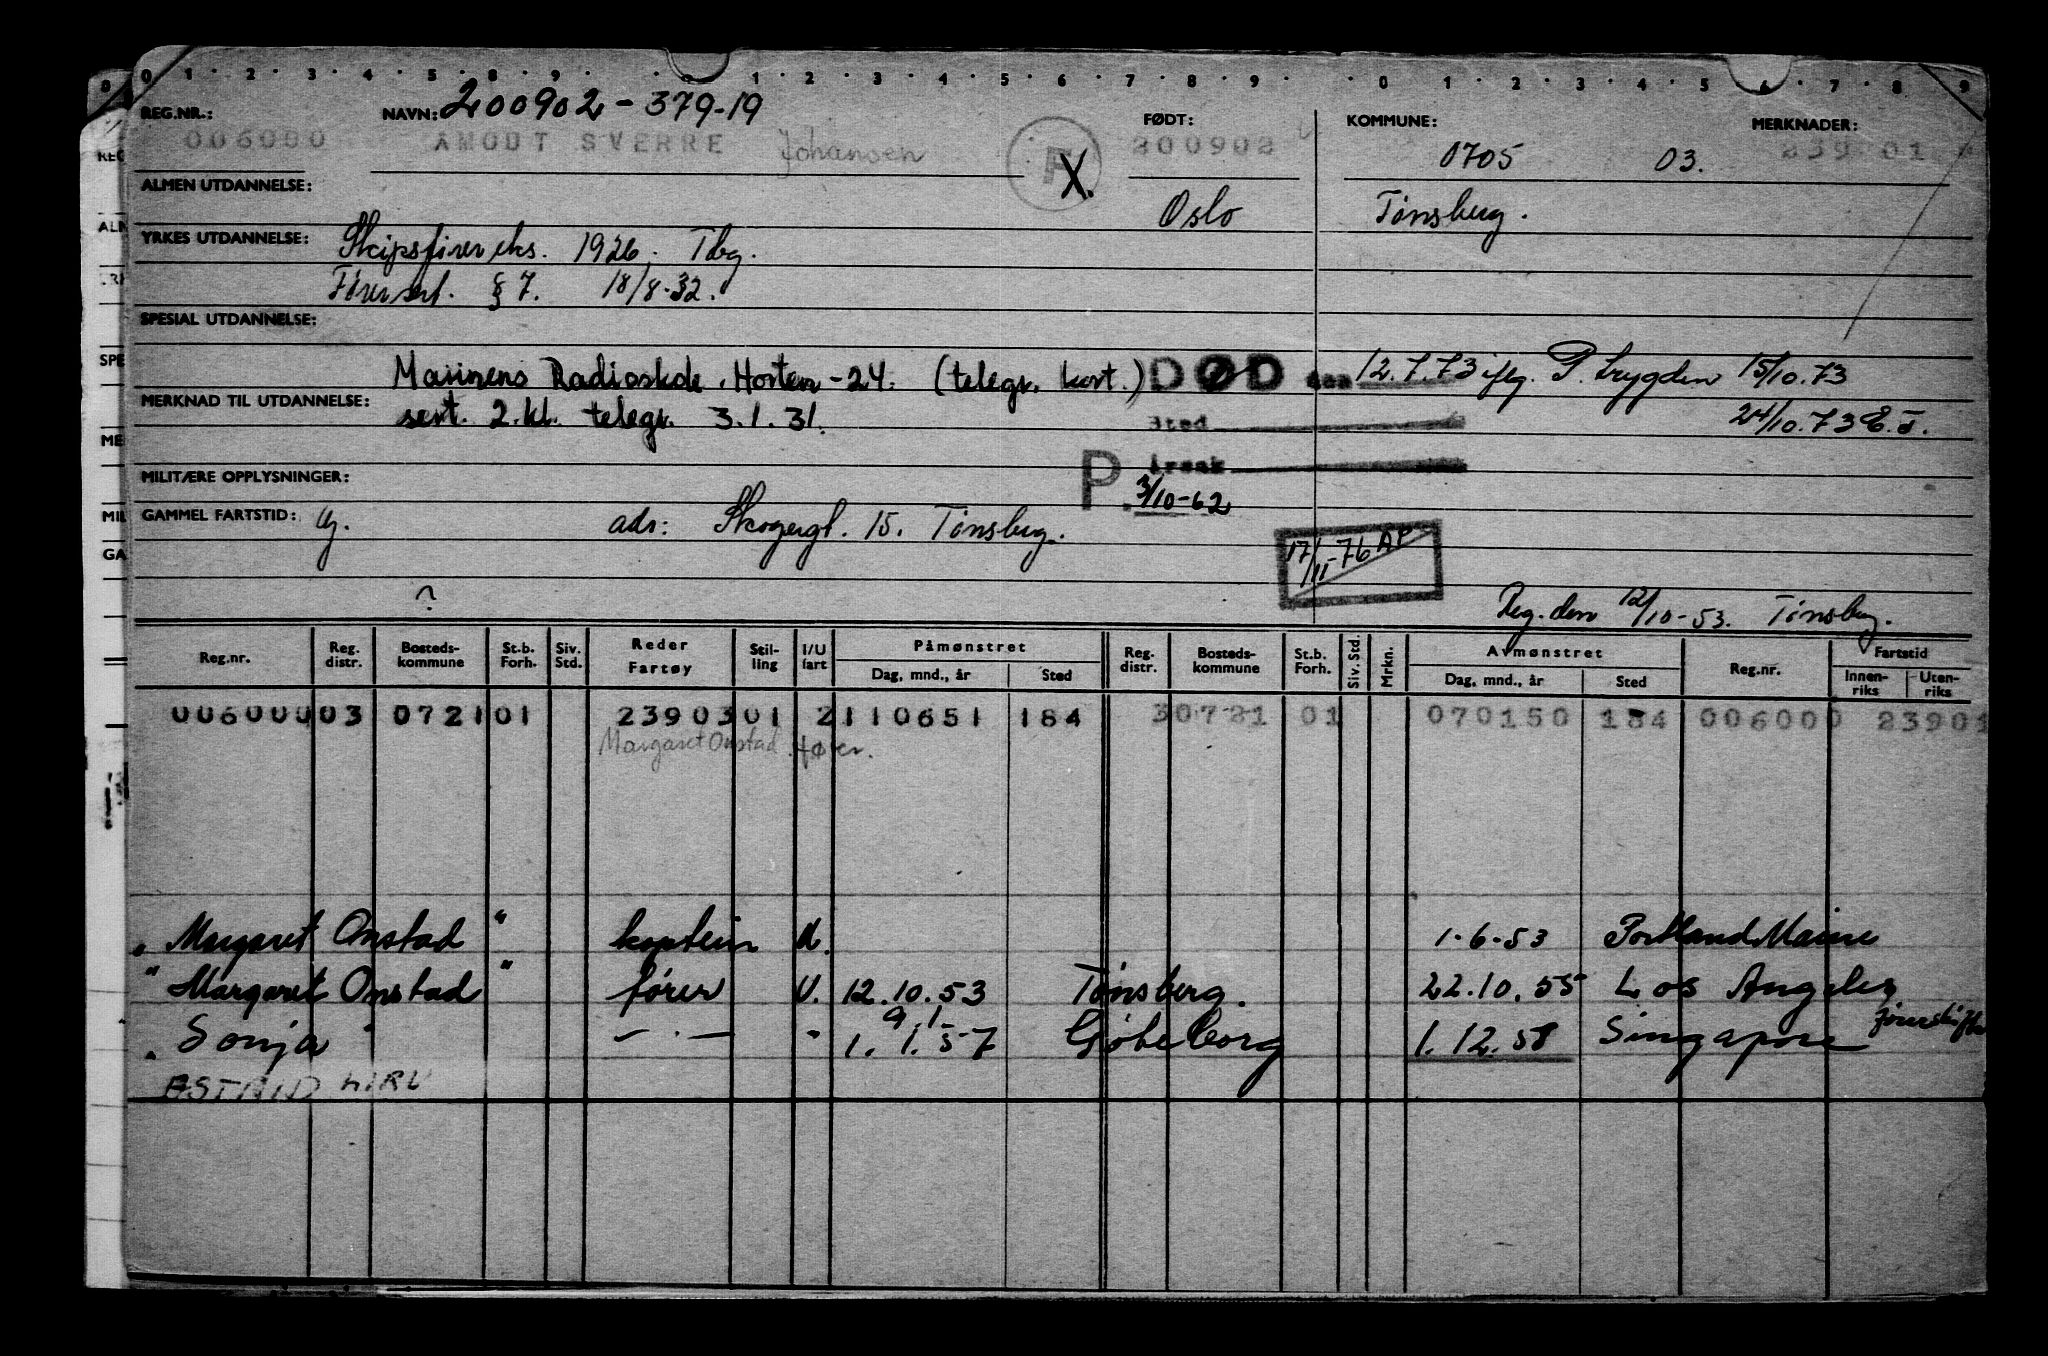 0 1 2 3 4 5 8 9 0 1 2 3 4 5 6 7 8 9 0 1 2 3 4 5 6 7 8 9
REG.NR.: NAVN: 200902-379-19 FØDT: KOMMUNE: MERKNADER:
006000 AMODT SVERRE Johansen F X. 200902 0705 03. 239 01
ALMEN UTDANNELSE: Oslo Tønsberg.
YRKES UTDANNELSE: Skipsfører eks. 1926. Tbg.
Førersert. § 7. 18/8.32.
SPESIAL UTDANNELSE:
Marinens Radioskole, Horten -24. (telegr. kort.) DØD den 12.7.73 ifлg. P. trygden 15/10.73
MERKNAD TIL UTDANNELSE: sert. 2.kl. telegr. 3.1.31. Sted 24/10.73 E.J.
Årsak
MILITÆRE OPPLYSNINGER: P. 3/10-62
GAMMEL FARTSTID: adr: Skogergt. 15. Tønsberg.
17/11-76 AP
? Reg. den 12/10-53. Tønsberg.
Reg.nr. Reg. distr. Bosteds-kommune St.b. Forh. Siv. Std. Reder Fartøy Stil-ling I/U fart Påmønstret Dag, mnd., år Sted Reg. distr. Bosteds-kommune St.b. Forh. Siv. Std. Mrkn. Avmønstret Dag, mnd., år Sted Reg.nr. Fartstid Innen-riks Uten-riks
006000 03 0721 01 23903 01 2 110651 184 30721 01 070150 184 006000 23901
Margaret Onstad fører.
" Margaret Onstad " kaptein U. 1-6-53 Portland Maine
" Margaret Onstad " fører U. 12.10.53 Tønsberg. 22.10.55 Los Angeles
9.1.
" Sonja " — . — " 1. 1. 57 Gøteborg 1.12.58 Singapore